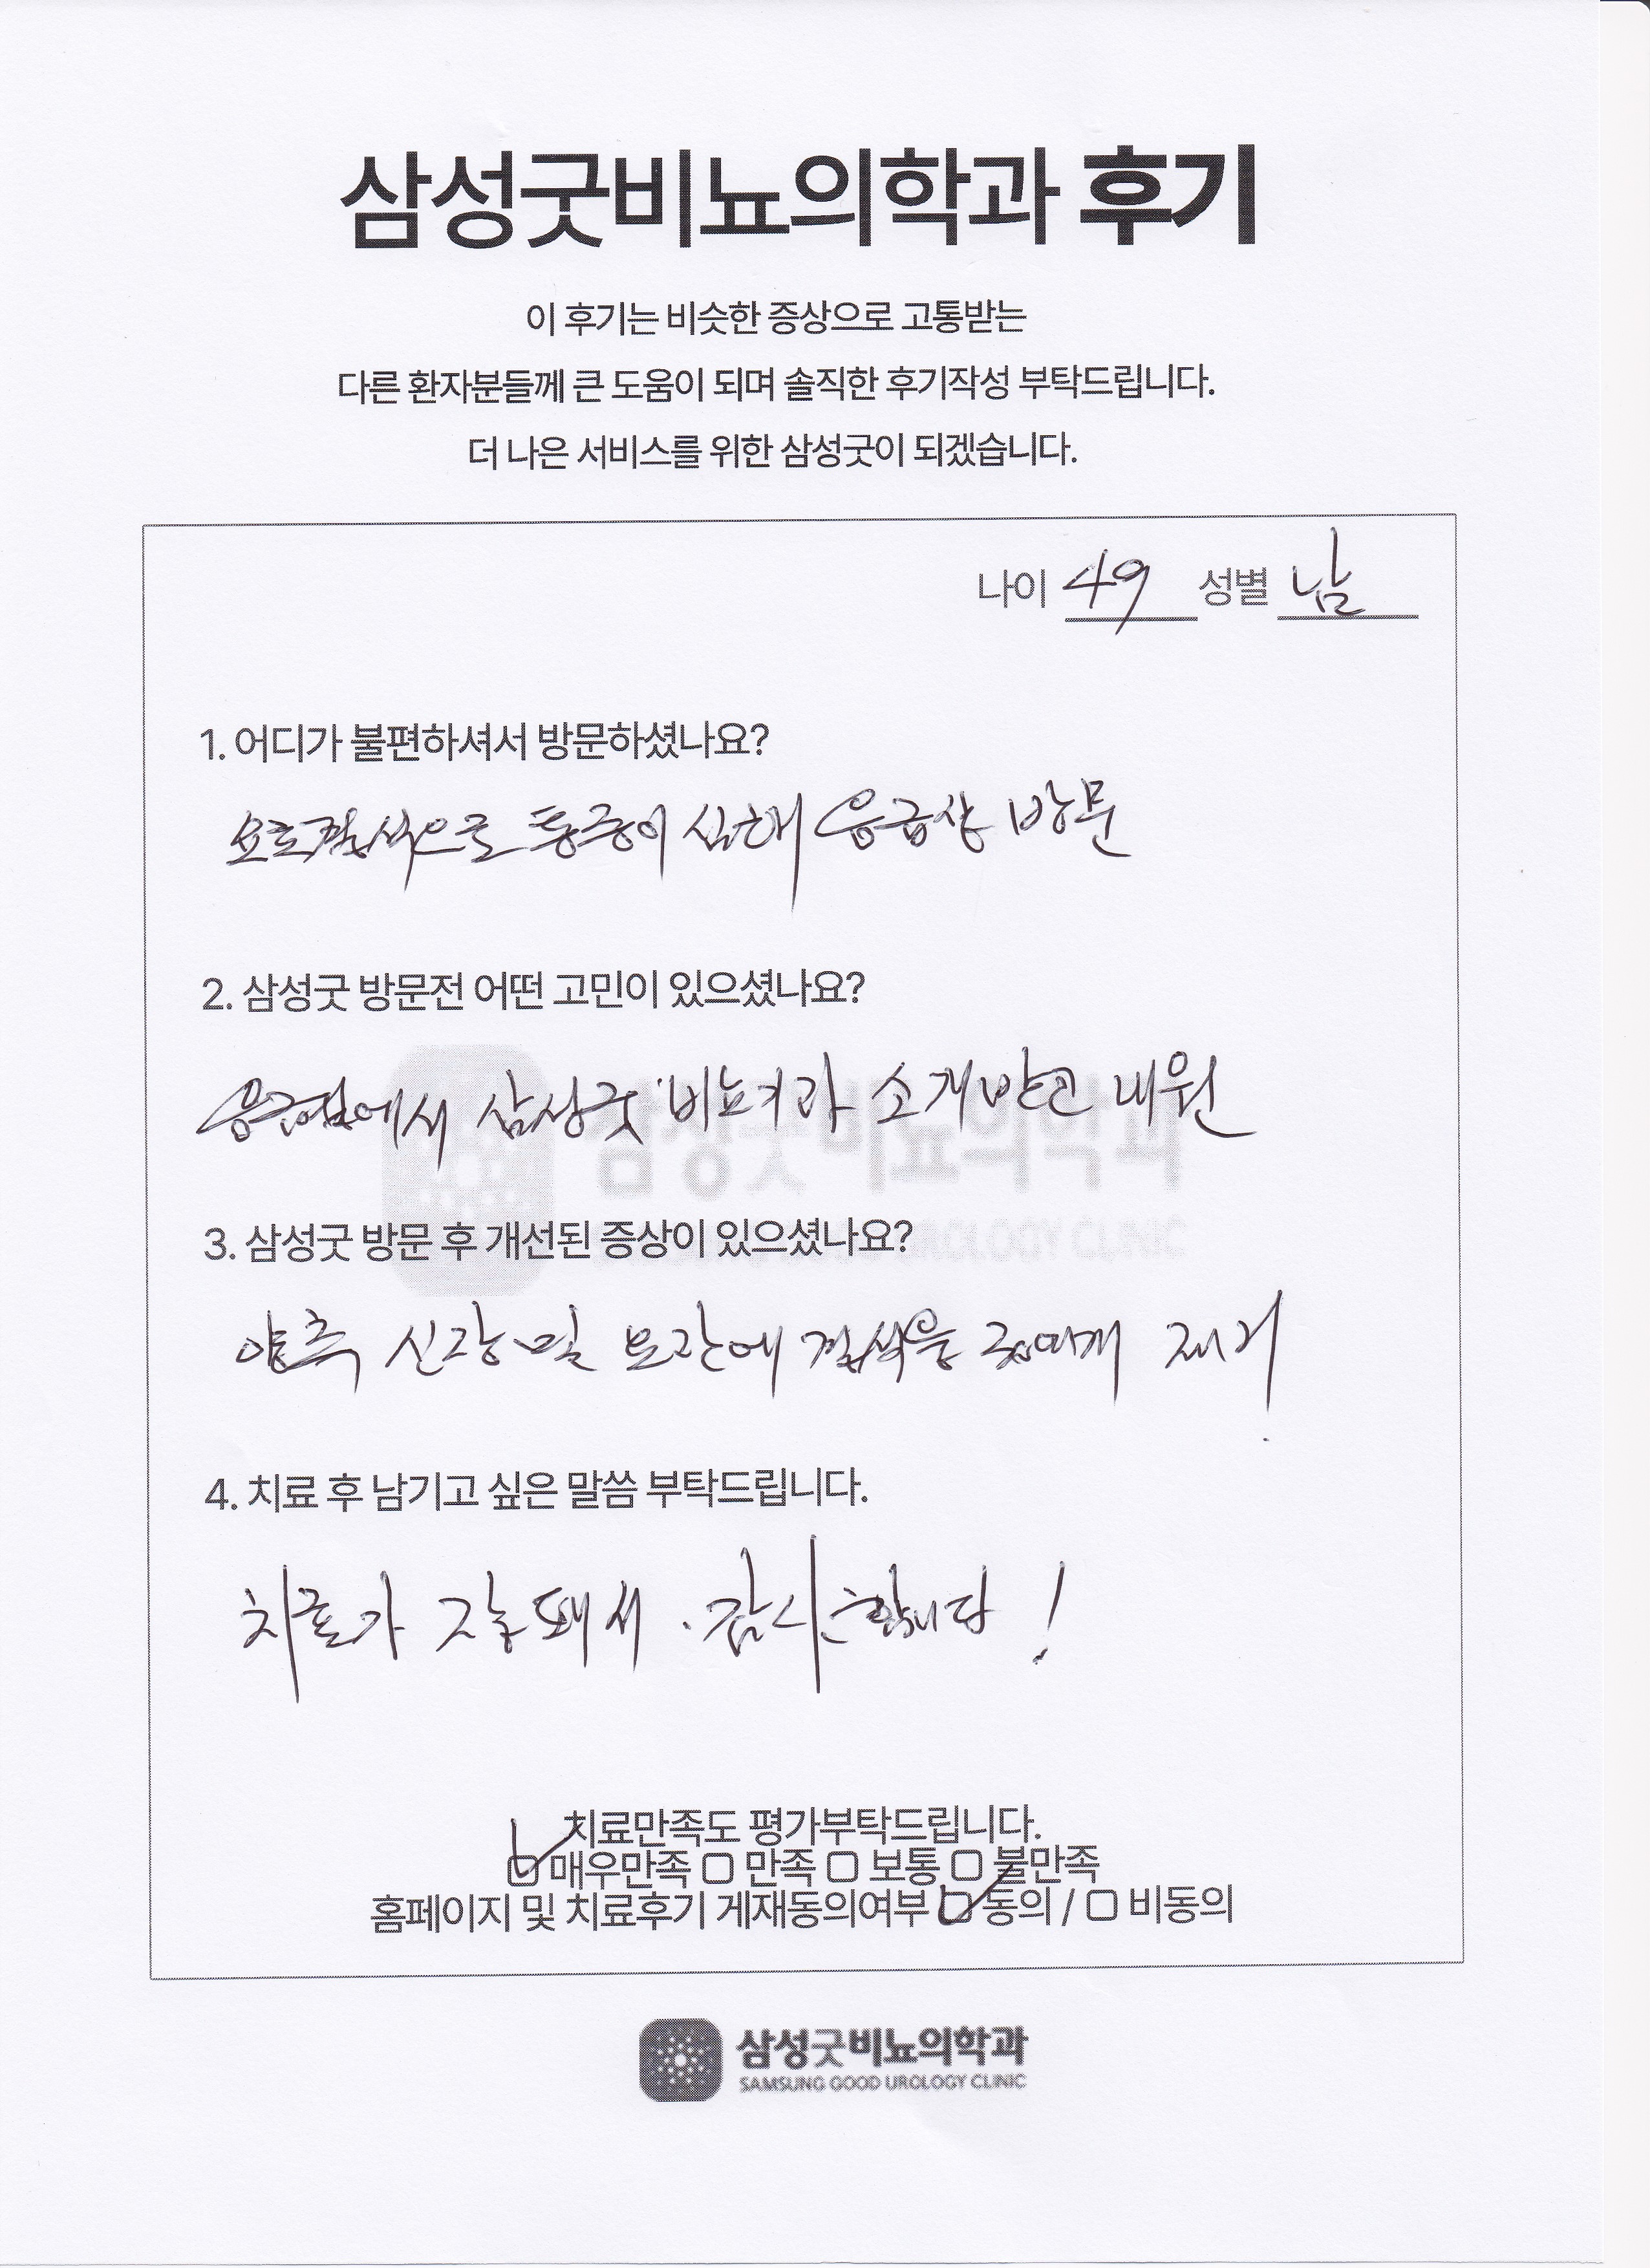 삼성굿비뇨의학과 후기
이 후기는 비슷한 증상으로 고통받는
다른 환자분들께 큰 도움이 되며 솔직한 후기작성 부탁드립니다.
더 나은 서비스를 위한 삼성굿이 되겠습니다.
나이 49 성별 남
1. 어디가 불편하셔서 방문하셨나요?
요로결석으로 통증이 심해 응급상 방문
2. 삼성굿 방문전 어떤 고민이 있으셨나요?
삼성굿비뇨의학과
에서 삼성굿 비뇨기과 소개받고 내원
3. 삼성굿 방문 후 개선된 증상이 있으셨나요?
UROLOGY CLINIC
양측 신장 및 요관에 결석을 제거
4. 치료 후 남기고 싶은 말씀 부탁드립니다.
치료가 잘 돼서. 감사합니다!
치료만족도 평가부탁드립니다.
매우만족 만족 보통 불만족
홈페이지 및 치료후기 게재동의여부 동의 / 비동의
삼성굿비뇨의학과
SAMSUNG GOOD UROLOGY CLINIC